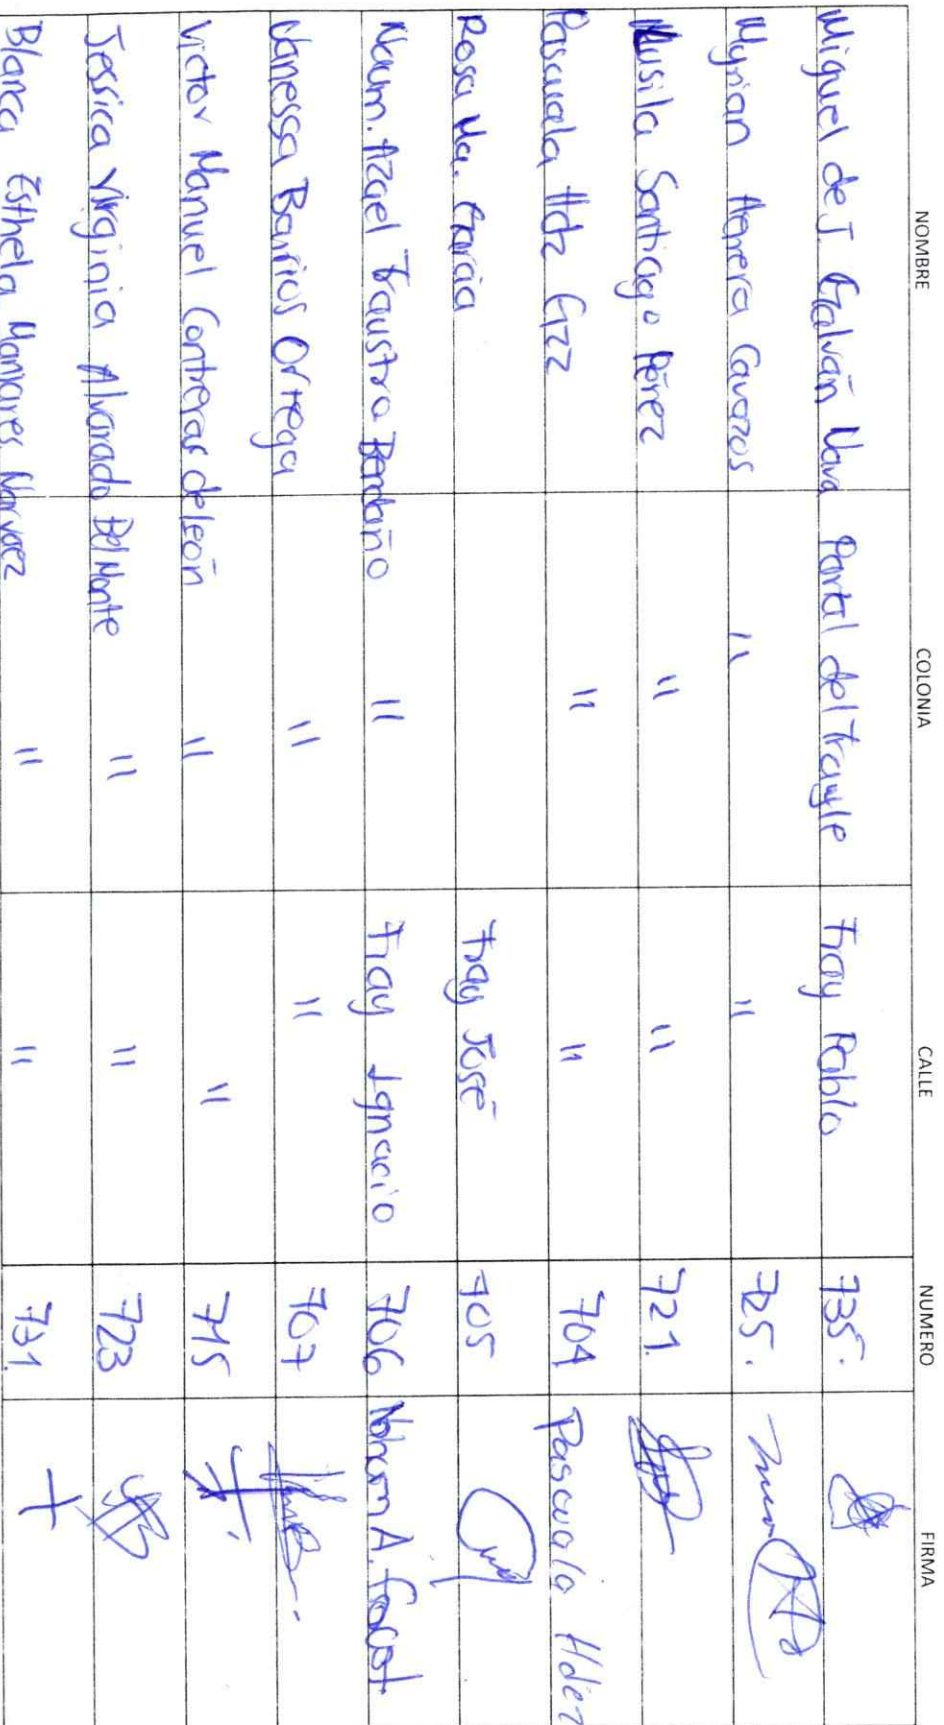 NOMBRE COLONIA CALLE NUMERO FIRMA
Miguel de J. Galván Nava Portal del Frayle Fray Pablo 735.
Myrian Herrera Cavazos " " 725.
Ausila Santiago Pérez " " 721.
Pascuala Hdz Gzz " " 704 Pascuala Hdez
Rosa Ma. García Fray José 705
Naum. Azael Fraustro Bandaño " Fray Ignacio 706
Vanessa Barrios Ortega " " 707
Victor Manuel Contreras de león " " 715
Jessica Virginia Alvarado Del Monte " " 723
Blanca Esthela Manjares Narvaez " " 731.